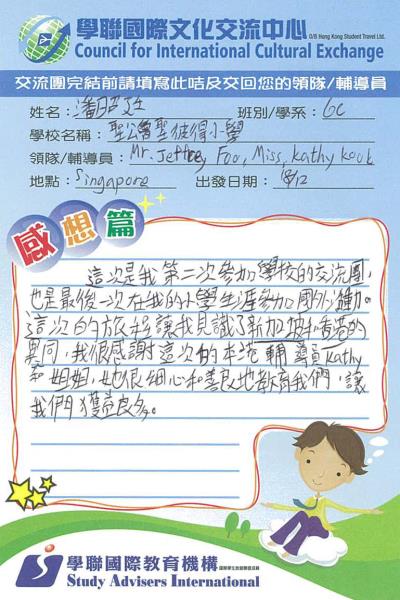 學聯國際文化交流中心
O/B Hong Kong Student Travel Ltd.
Council for International Cultural Exchange
交流團完結前請填寫此咭及交回您的領隊/輔導員
姓名: 潘 班別/學系: 6C
學校名稱: 聖公會聖彼得小學
領隊/輔導員: Mr. Jeffrey Foo, Miss, Kathy Kouk
地點: Singapore 出發日期: 8/12
感想篇
這次是我第二次參加學校的交流團,
也是最後一次在我的小學生涯參加國外活動。
這次的旅程讓我見識了新加坡和香港的
異同,我很感謝這次的本港輔導員Kathy
和姐姐,她很細心和善良地教育我們,讓
我們獲益良多。
學聯國際教育機構
Study Advisers International